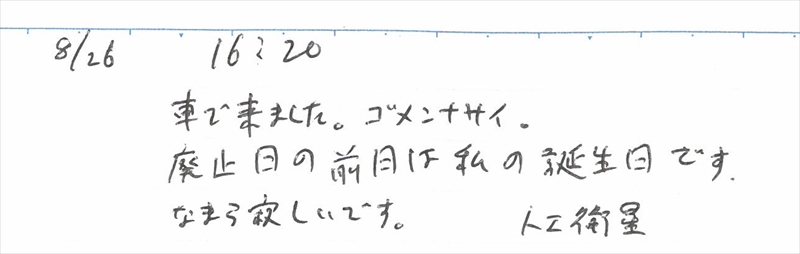 8/26 16:20
車で来ました。ゴメンナサイ。
廃止日の前日は私の誕生日です.
なまら寂しいです。 人工衛星